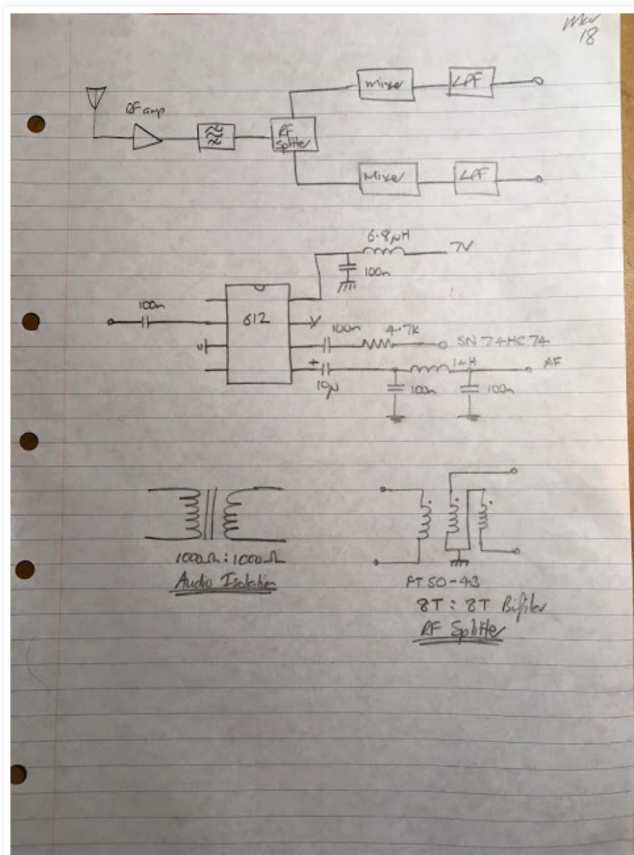 Mar
18
RF amp
RF
Splitter
Mixer
LPF
Mixer
LPF
6.8μH
7V
100n
100n
612
100n
4.7k
SN 74HC74
+
10μ
1mH
AF
100n
100n
1000Ω : 1000Ω
Audio Isolation
FT50-43
8T : 8T Bifiler
RF Splitter